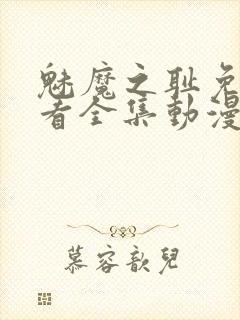 魅魔之耻免
者全集動漫
慕容歆兒